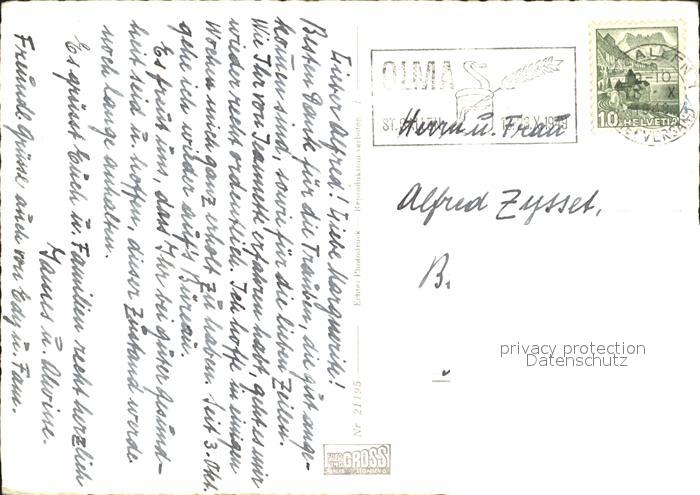 Lieber Alfred! Liebe Margurith!
Besten Dank für die Trauben, die gut ange-
kommen sind, sowie für die lieben Zeilen.
Wie Ihr von Jeannette erfahren habt, geht es mir
wieder recht ordentlich. Ich hoffe in einigen
Wochen mich ganz erholt zu haben. Seit 3. Okt.
gehe ich wieder aufs Büreau.
Es freut uns, dass Ihr bei guter Gesund-
heit seid u. hoffen, dieser Zustand werde
noch lange anhalten.
Es grüsst Euch u. Familien recht herzlich
Hannes u. Alwine.
Freundl. Grüsse auch von Edy u. Fam.
Nr. 21195
Echtes Photodruck
Reproduktion verboten
GROSS
OLMA
ST. GALLEN
X. 1949
10 HELVETIA
10
X
Herrn u. Frau
Alfred Zysset,
B.
privacy protection
Datenschutz